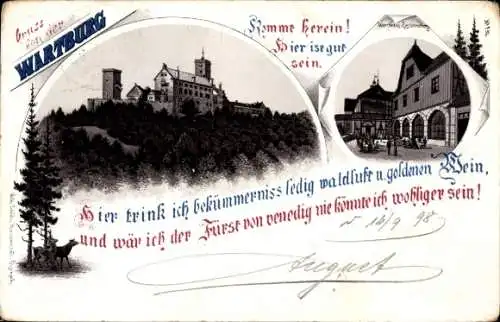 Gruss
von der
WARTBURG
Komme herein!
Hier ist gut
sein.
Hier trink ich bekümmerniss ledig waldluft u. goldnen Wein,
und wär ich der Fürst von venedig nie könnte ich wohliger sein!
d 16/9 98
August